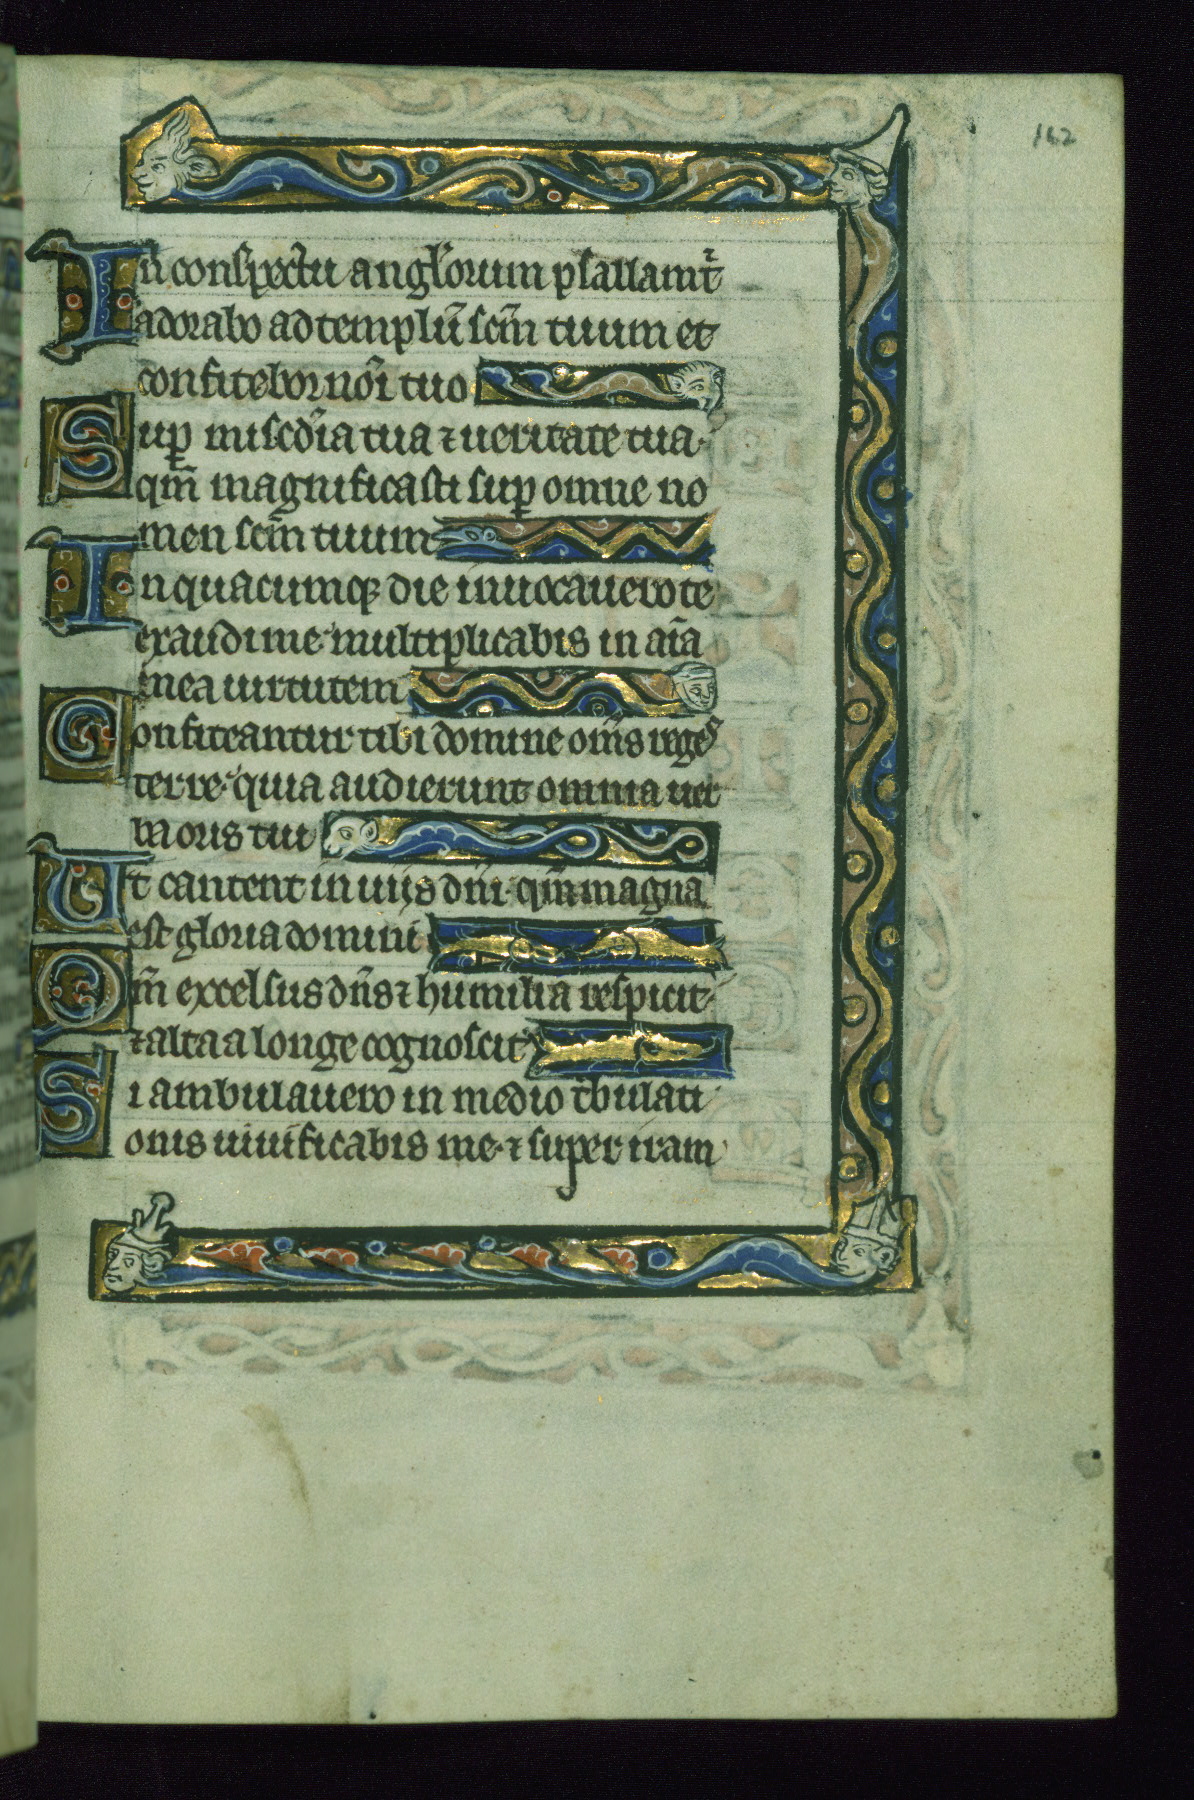 162
In conspectu angl̾orum psallam t̾
adorabo ad templū scm̄ tuum et
confitebor noī tuo
Sup̲ misc̾dia tua ⁊ ueritate tua·
qm̄ magnificasti sup̲ omne no
men scm̄ tuum
In quacumq; die inuocauero te
exaudi me· multiplicabis in aīa
mea uirtutem
Confiteantur tibi domine om̄s reges
terre· quia audierunt omnia uer
ba oris tui
Ut cantent in uijs dn̄i· qm̄ magna
est gloria domini
Qm̄ excelsus dn̄s ⁊ humilia respicit·
⁊ alta a longe cognoscit
Si ambulauero in medio t̾bulati
onis uiuificabis me· ⁊ super iram